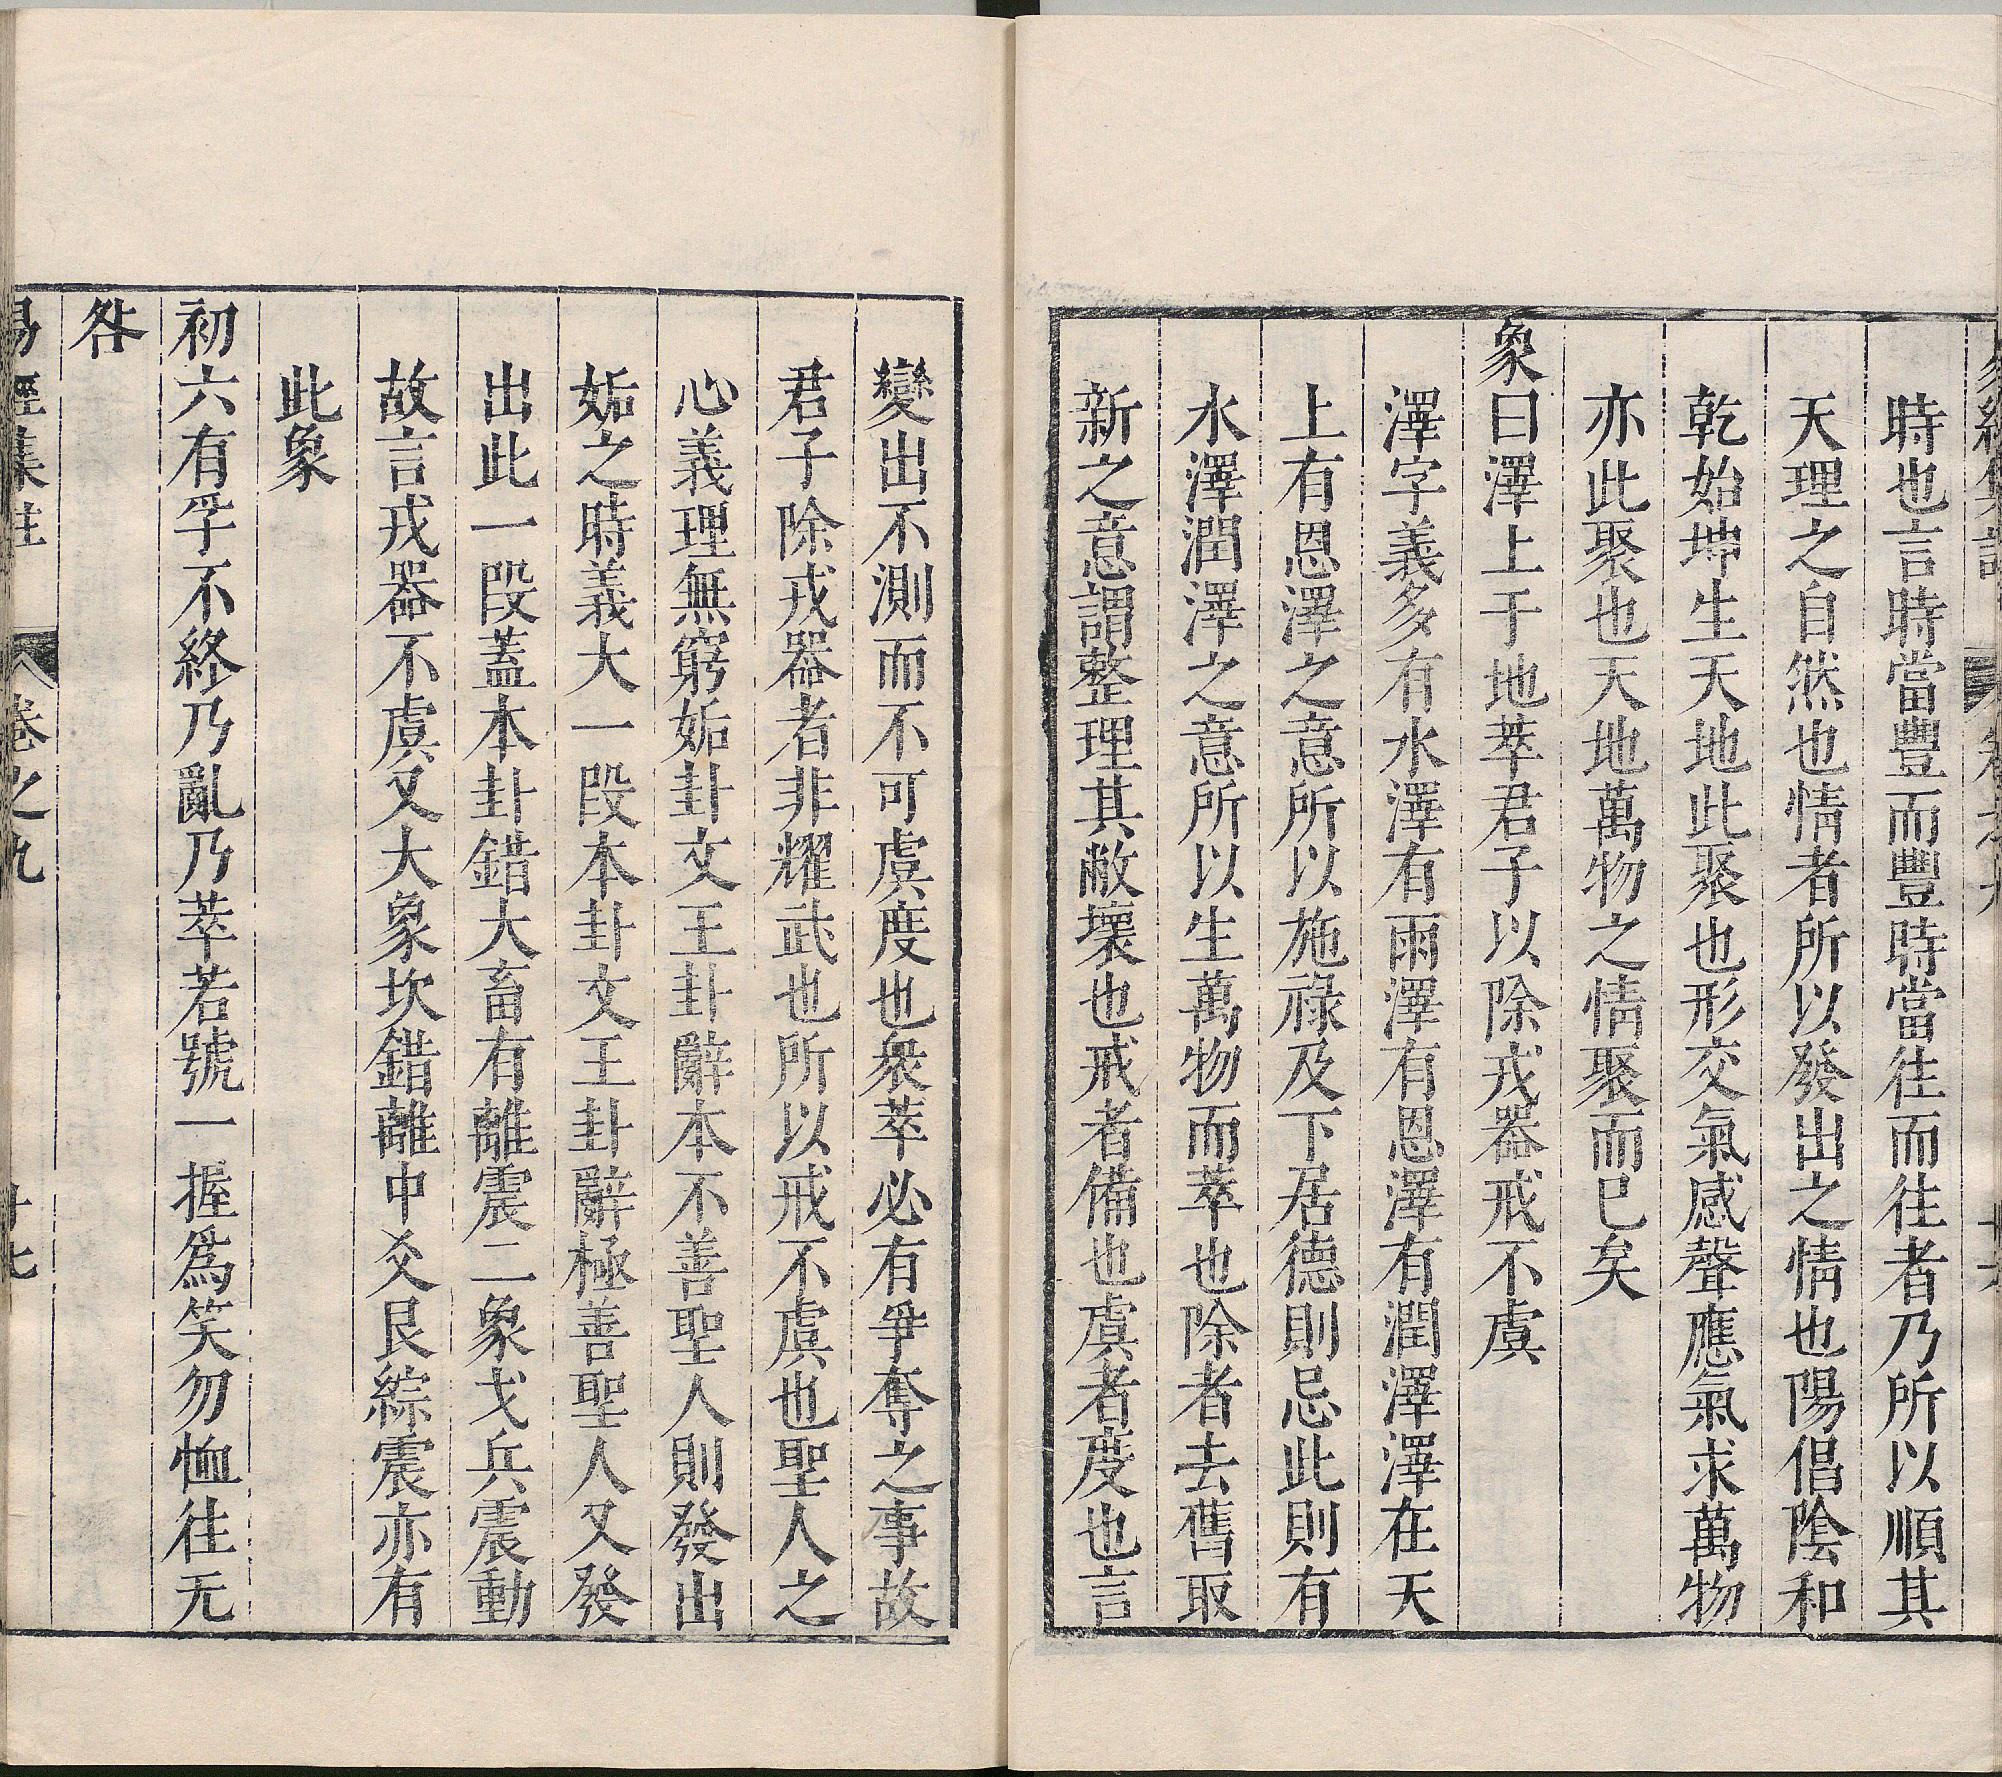 時也言時當豐而豐時當往而往者乃所以順其
天理之自然也情者所以發出之情也陽倡陰和
乾始坤生天地此聚也形交氣感聲應氣求萬物
亦此聚也天地萬物之情聚而已矣
象曰澤上于地萃君子以除戎器戒不虞
澤字義多有水澤有雨澤有恩澤有潤澤澤在天
上有恩澤之意所以施祿及下居德則忌此則有
水澤潤澤之意所以生萬物而萃也除者去舊取
新之意謂整理其敝壞也戒者備也虞者度也言
變出不測而不可虞度也衆萃必有爭奪之事故
君子除戎器者非耀武也所以戒不虞也聖人之
心義理無窮姤卦文王卦辭本不善聖人則發出
姤之時義大一段本卦文王卦辭極善聖人又發
出此一段蓋本卦錯大畜有離震二象戈兵震動
故言戎器不虞又大象坎錯離中爻艮綜震亦有
此象
初六有孚不終乃亂乃萃若號一握爲笑勿恤往无
咎
易經集註 卷之九